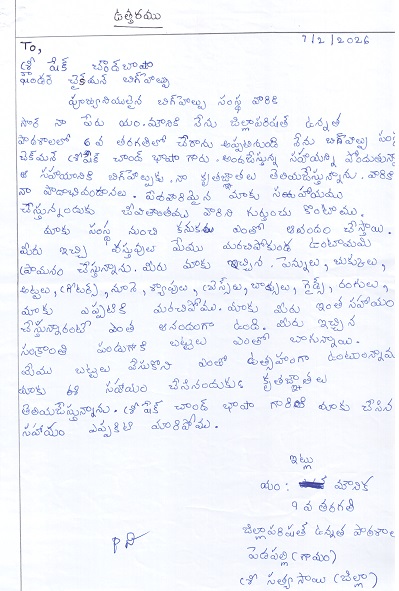 ఉత్తరము
To,
7/2/2026
శ్రీ షేక్ చాంద్‌బాషా
ఫౌండర్ ఛైర్మన్ బిగ్‌హెల్ప్
పూజ్యనీయులైన బిగ్‌హెల్ప్ సంస్థ వారికి
సార్ నా పేరు యం.మానిక నేను జిల్లాపరిషత్ ఉన్నత
పాఠశాలలో 6వ తరగతిలో చేరాను అప్పటినుండి నేను బిగ్‌హెల్ప్
చైర్‌మన్ శ్రీషేక్ చాంద్ భాషా గారు. అందజేస్తున్న సహాయాన్ని పొందుతున్నా
ఆ సహాయానికి బిగ్‌హెల్ప్‌కు. నా కృతజ్ఞతలు తెలియజేస్తున్నాను. వారికి
నా పాదాభివందనాలు. పేదవారిమైన మాకు సహాయము
చేస్తున్నందుకు జీవితాంతము వారిని గుర్తుంచు కొంటాము.
మాకు సంస్థ నుంచి కనుకకు ఎంతో ఆనందం చేస్తాయి.
మీరు ఇచ్చి వస్తువులు మేము మరచిపోకుండ ఉంటామని
ప్రమానం చేస్తున్నాను. మీరు మాకు ఇచ్చిన పెన్నులు, బుక్కులు,
అట్టలు, నూనె, శ్యాంపులు, బాక్సులు, గైడ్స్, రంగులు,
మాకు ఎప్పటికి మరచిపోము. మాకు మీరు ఇంత సహాయం
చేస్తున్నారంటే ఎంత ఆనందంగా ఉంది. మీరు ఇచ్చిన
సంక్రాంతి పండుగకి బట్టలు ఎంతో బాగున్నాయి.
మేము బట్టలు వేసుకొని ఎంతో ఉత్సాహంగా ఉంటున్నాము
మాకు ఈ సహాయం చేసినందుకు కృతజ్ఞతలు
తెలియజేస్తున్నాను. శ్రీ షేక్ చాండ్ భాషా గారికి మాకు చేసిన
సహాయం ఎప్పటికి మారిపోము.
ఇట్లు
యం: మానిక
9వ తరగతి
జిల్లాపరిషత్ ఉన్నత పాఠశాల
పెడపల్లి (గ్రామం)
శ్రీ సత్యసాయి (జిల్లా)